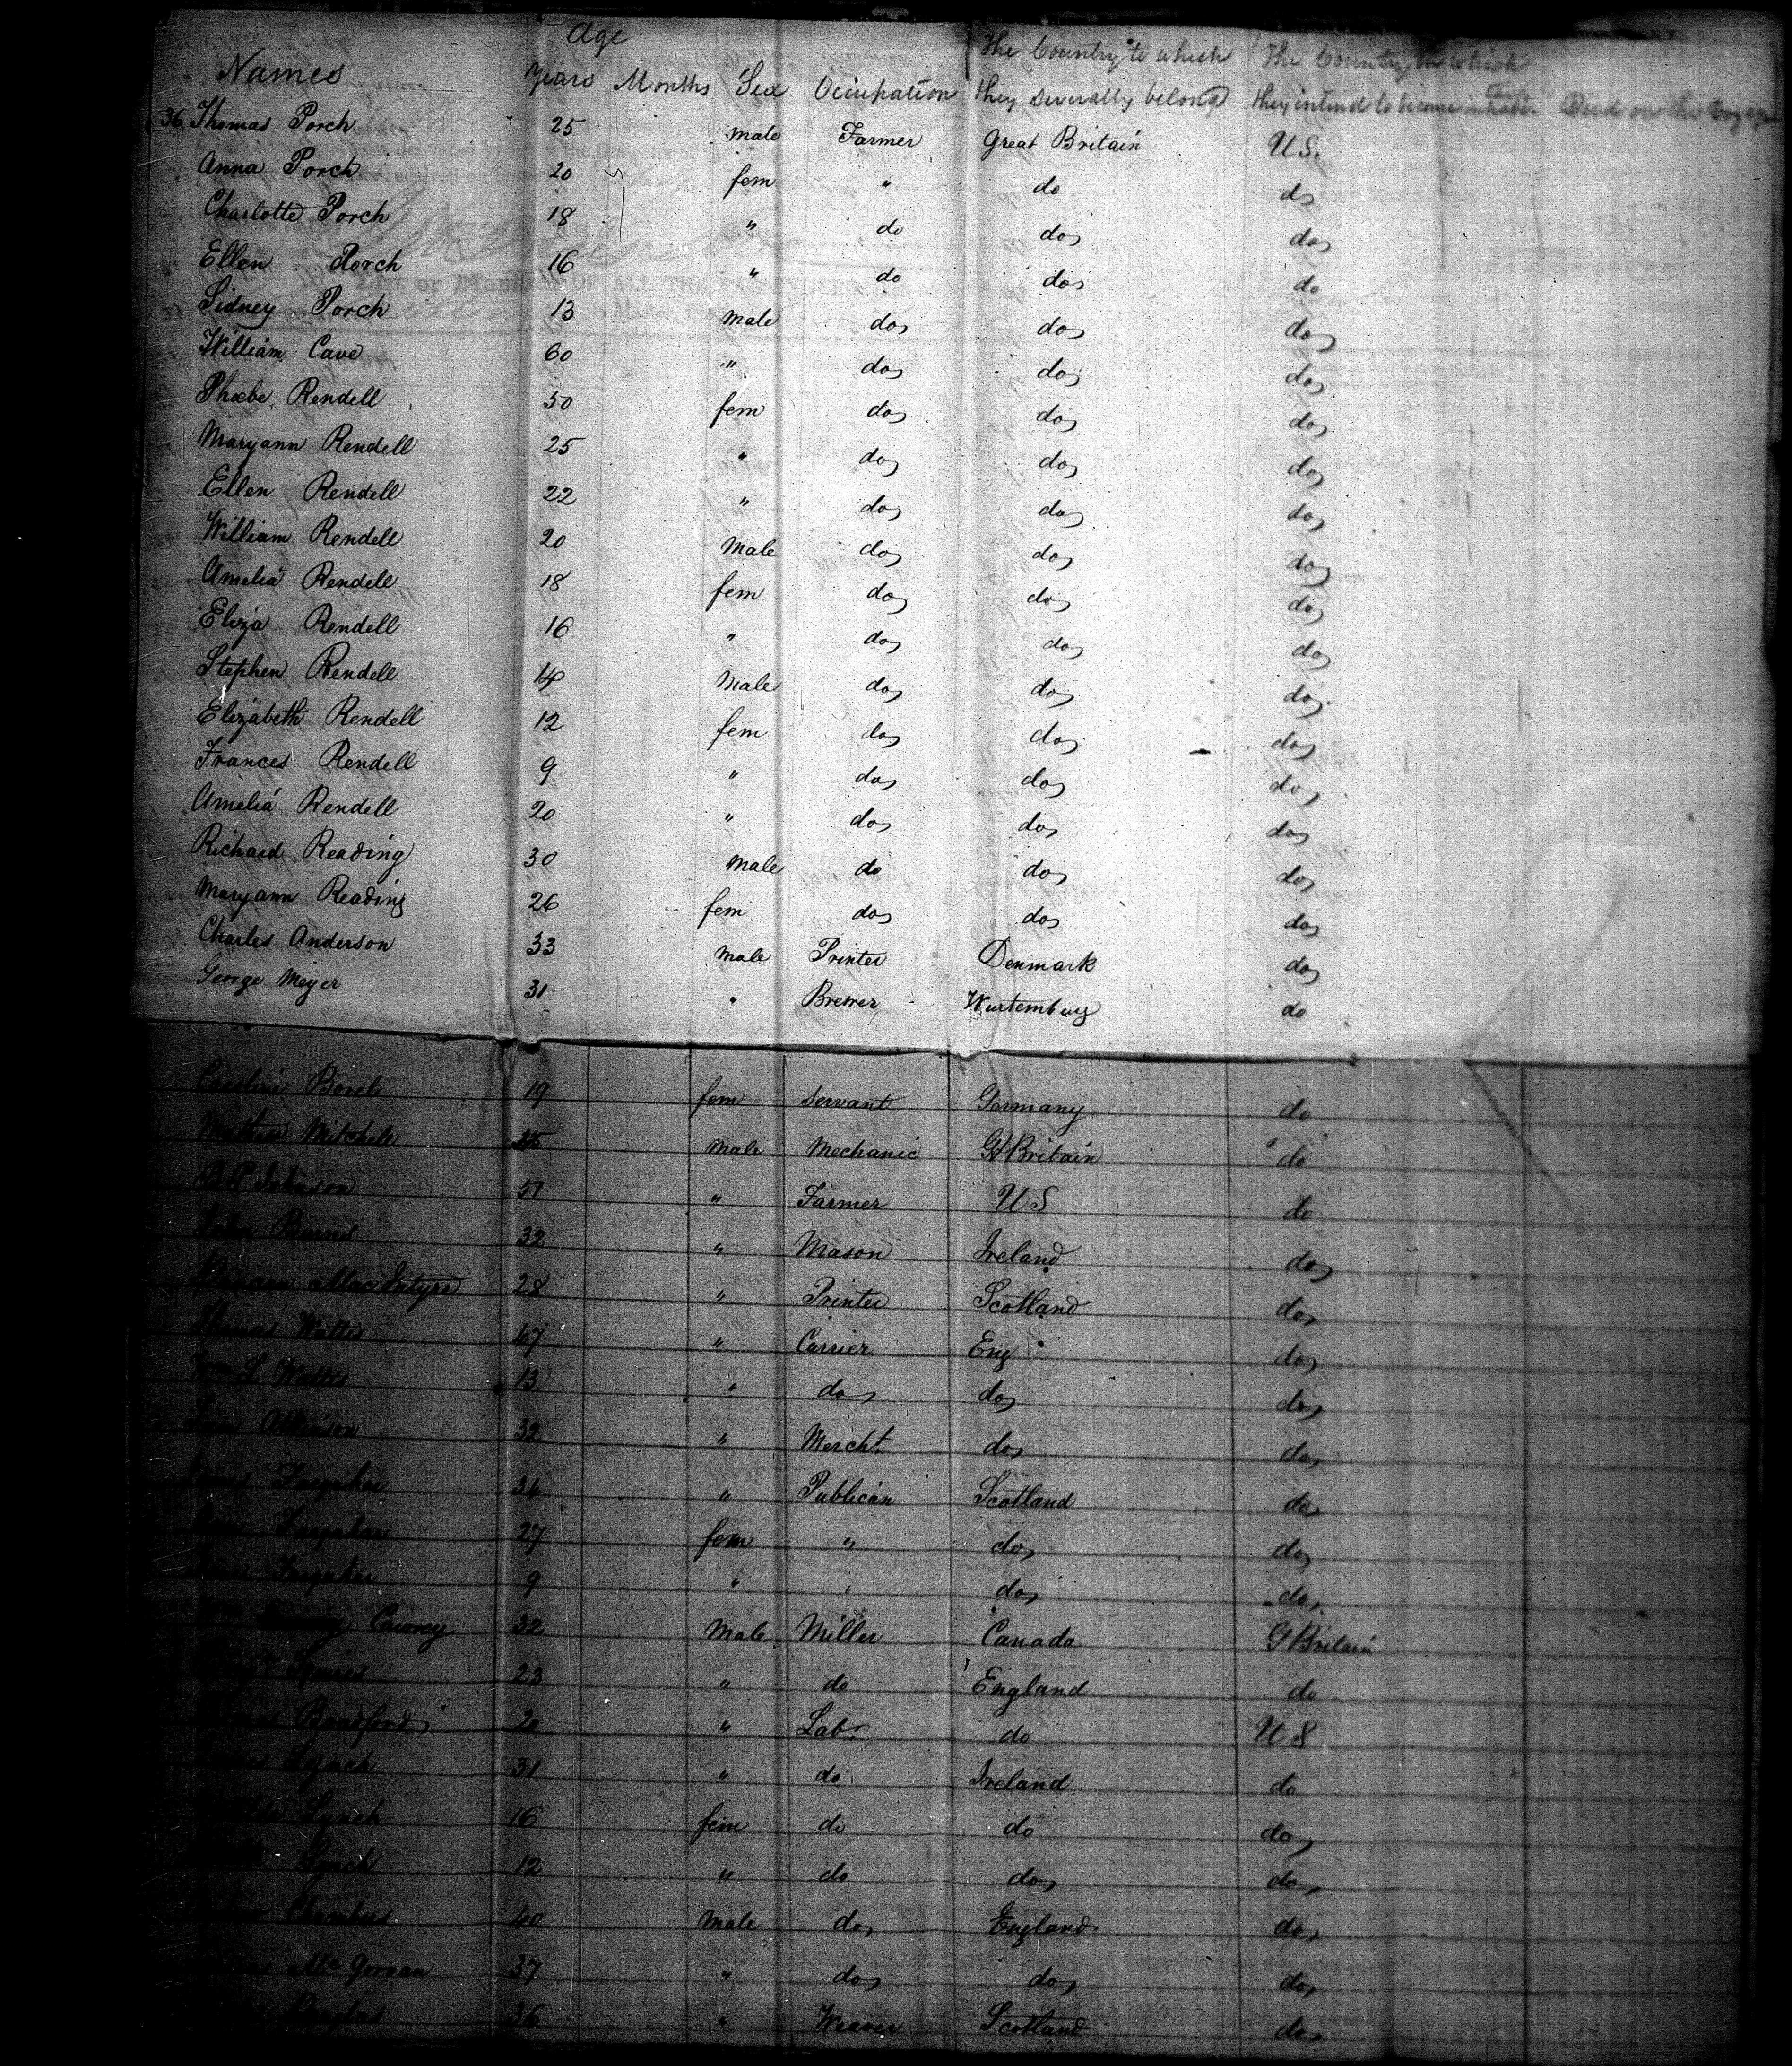 Age
Names Years Months Sex Occupation The Country to which they severally belong The Country in which they intend to become inhabitants Died on the Voyage
36 Thomas Porch 25 male Farmer Great Britain U S.
Anna Porch 20 fem " do do
Charlotte Porch 18 " do do do
Ellen Porch 16 " do do do
Sidney Porch 13 male do do do
William Cave 60 " do do do
Phœbe Rendell 50 fem do do do
Maryann Rendell 25 " do do do
Ellen Rendell 22 " do do do
William Rendell 20 Male do do do
Amelia Rendell 18 fem do do do
Eliza Rendell 16 " do do do
Stephen Rendell 14 Male do do do
Elizabeth Rendell 12 fem do do do
Frances Rendell 9 " do do do
Amelia Rendell 20 " do do do
Richard Reading 30 Male do do do
Maryann Reading 26 fem do do do
Charles Anderson 33 male Printer Denmark do
George Meyer 31 " Brewer Wurtemburg do
19 fem Servant Germany do
Mitchele male Mechanic Gt Britain do
Johnson 51 " Farmer U S do
Burns 32 " Mason Ireland do
Mac Intyre 28 " Printer Scotland do
Thomas Wattis 47 " Carrier Eng do
Wm S Wattis 13 " do do do
Atkinson 32 " Mercht. do do
Farquhar 34 " Publican Scotland do
Farquhar 27 fem " do do
Farquhar 9 " " do do
Cairney 32 Male Miller Canada Gt Britain
Squires 23 " do England do
Bradford 20 " Labr do U S
Lynch 31 " do Ireland do
Lynch 16 fem do do do
Lynch 12 " do do do
40 Male do England do
Mc Gowan 37 " do do do
36 " Weaver Scotland do